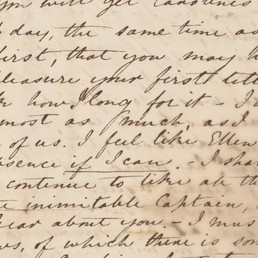 you will get Caroline's
day, the same time as
first, that you may h
pleasure your first lett
how I long for it - I
most as much as I
of us. I feel like Ellen
sence if I can. - I sha
continue to like all th
inimitable Captain,
ear about you - I mus
ws, of which there is som